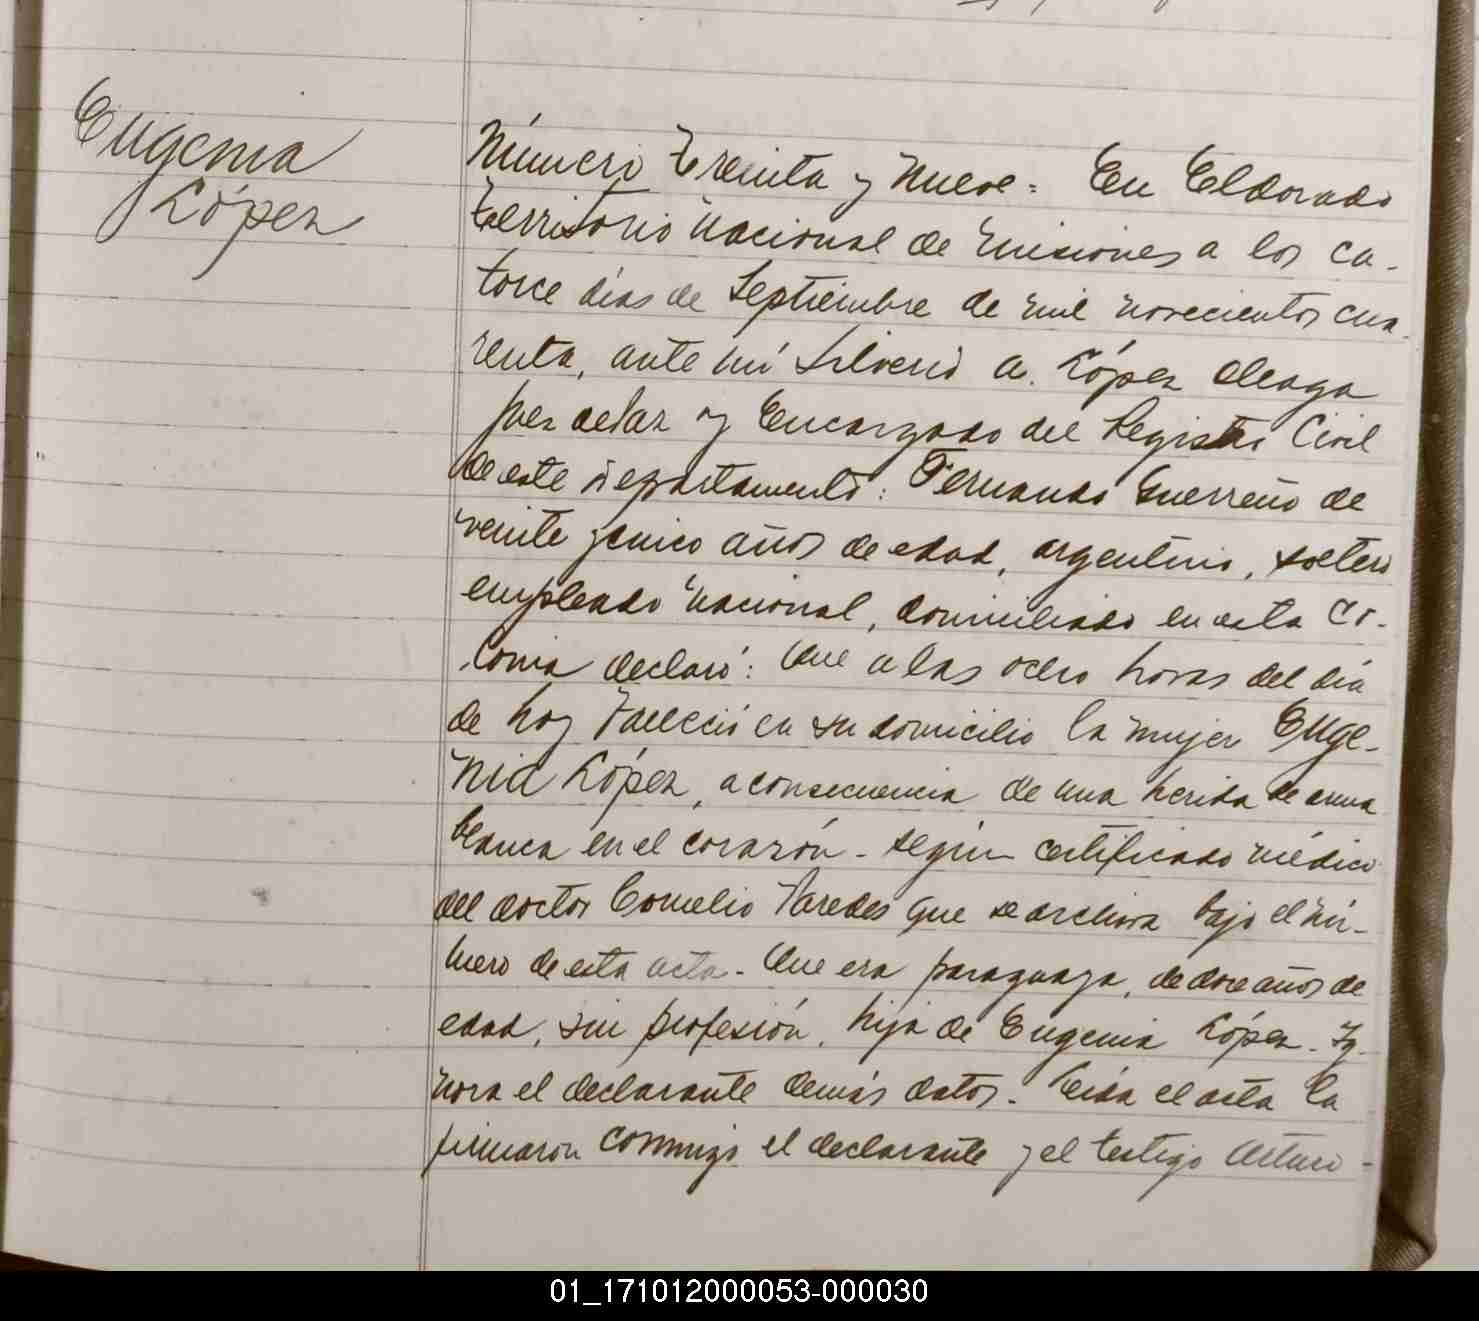 Eugenia
López
Número treinta y nueve = En Eldorado
territorio nacional de Misiones a los ca-
torce días de Septiembre de mil novecientos cua
renta, ante mí Silverio A. López Aleaga
juez de Paz y Encargado del Registro Civil
de este Departamento: Fernando Guerreño de
veinte y cinco años de edad, argentino, soltero
empleado nacional, domiciliado en esta Co-
lonia declaró: Que a las ocho horas del día
de hoy falleció en su domicilio la mujer Euge-
nia López, a consecuencia de una herida de arma
blanca en el corazón - según certificado médico
del doctor Cornelio Paredes que se archiva bajo el nú-
mero de esta acta - Que era paraguaya, de doce años de
edad, sin profesión, hija de Eugenia López. Ig-
nora el declarante demás datos. Leída el acta la
firmaron conmigo el declarante y el testigo Arturo -
01_171012000053-000030